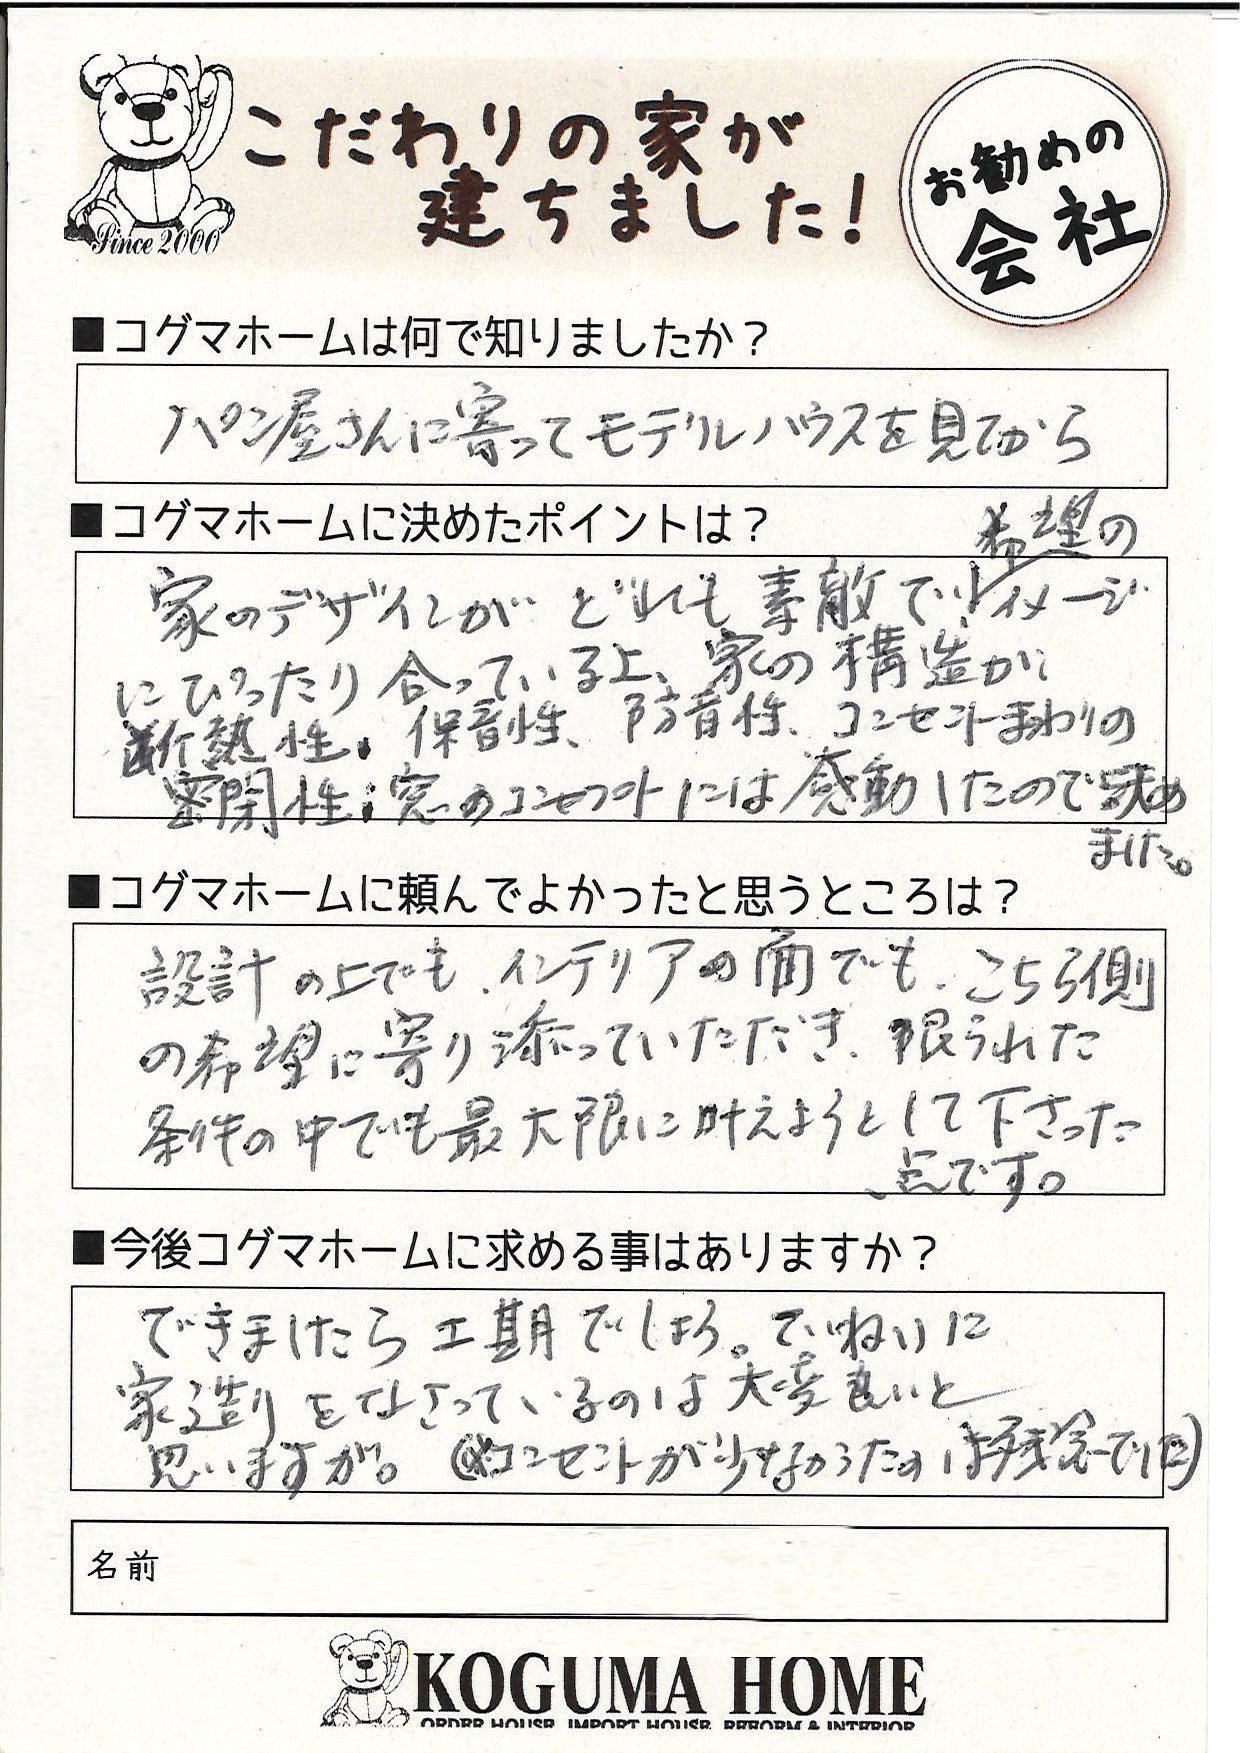 こだわりの家が
建ちました!
お勧めの
会社
Since 2000
■コグマホームは何で知りましたか?
パン屋さんに寄ってモデルハウスを見てから
■コグマホームに決めたポイントは?
希望の
家のデザインがどれも素敵でイメージ
にぴったり合っている上、家の構造が
断熱性、保音性、防音性、コンセントまわりの
密閉性、窓のコンセプトには感動したので決め
ました。
■コグマホームに頼んでよかったと思うところは?
設計の上でも、インテリアの面でも、こちら側
の希望に寄り添っていただき、限られた
条件の中でも最大限に叶えようとして下さった
点です。
■今後コグマホームに求める事はありますか?
できましたら工期でしょう。ていねいに
家造りをなさっているのは大変良いと
思いますが。(コンセントが少なかったのは残念でした)
名前
KOGUMA HOME
ORDER HOUSE IMPORT HOUSE REFORM & INTERIOR